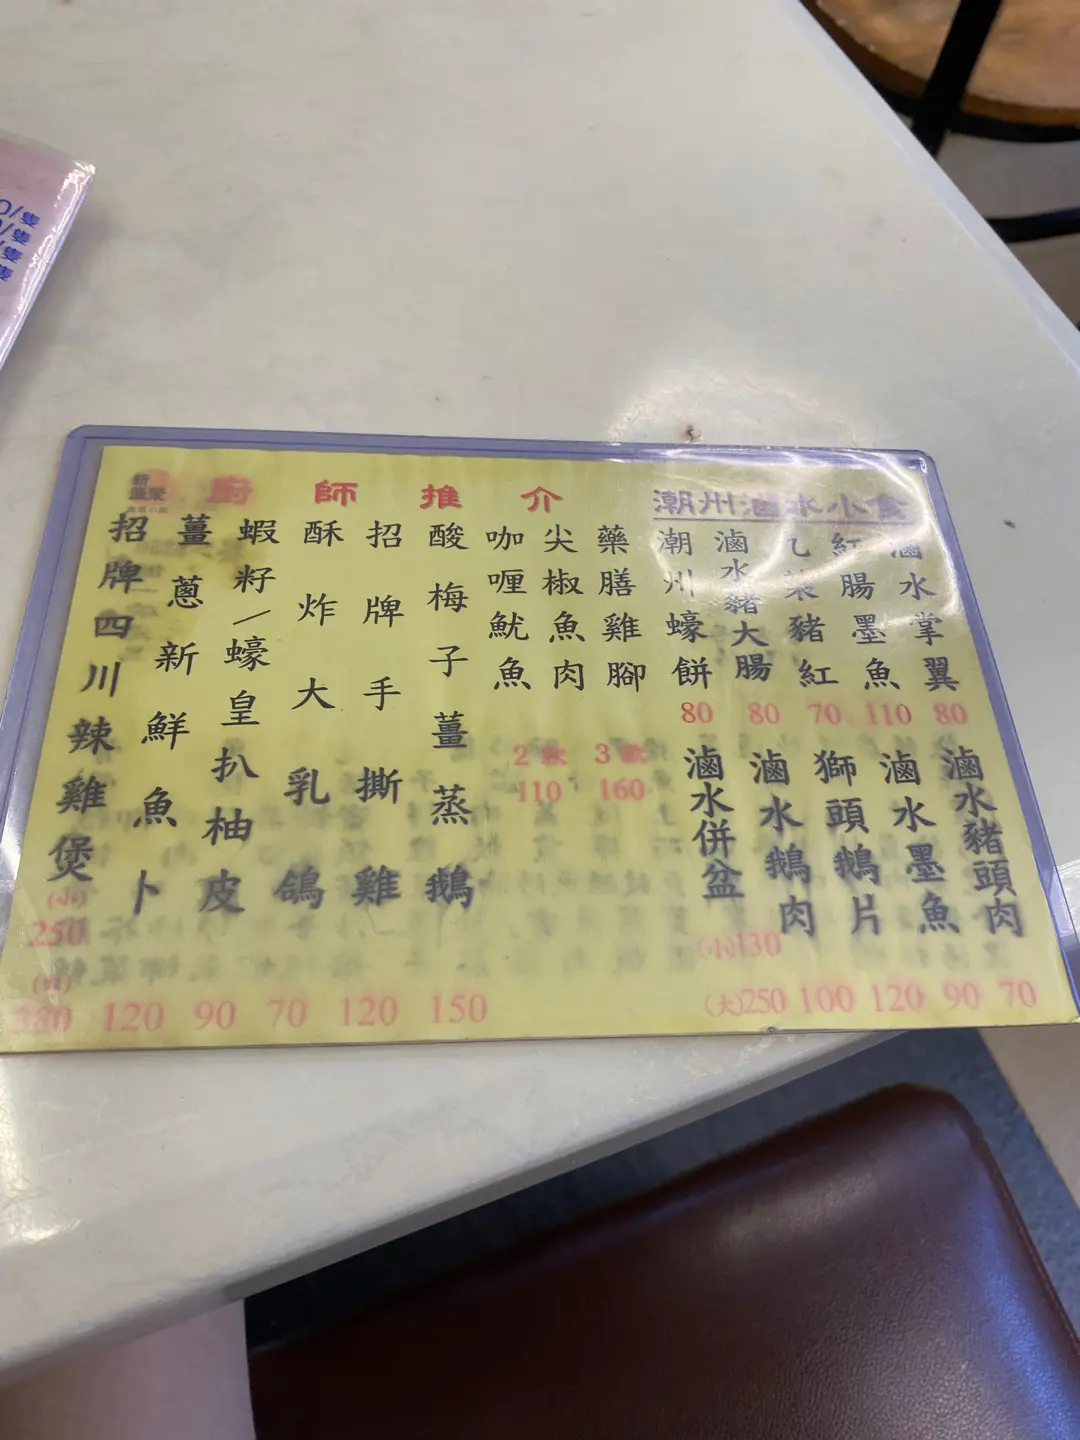 廚師推介
招牌四川辣雞煲
(小)
250
380
薑蔥新鮮魚卜
120
蝦籽/蠔皇扒柚皮
90
酥炸大乳鴿
70
招牌手撕雞
120
酸梅子薑蒸鵝
150
咖喱魷魚
尖椒魚肉
藥膳雞腳
2款 3款
110 160
潮州滷水小食
潮州蠔餅
80
滷水豬大腸
80
豬紅
70
紅腸墨魚
110
滷水掌翼
80
滷水併盆
(小)130
(大)250
滷水鵝肉
100
獅頭鵝片
120
滷水墨魚
90
滷水豬頭肉
70
/隻
/隻
/隻
隻